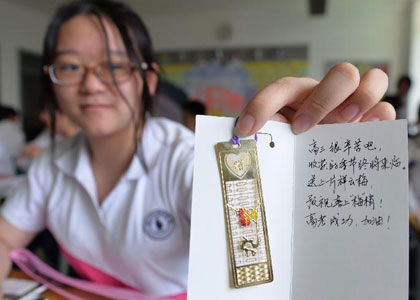 高三很辛苦吧，
收获的季节终将来临。
送上一片祥云
预祝喜上梅梢！
高考成功，加油！